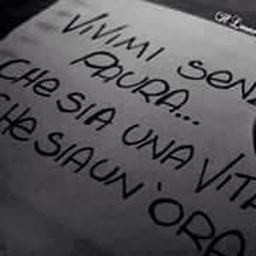 VIVIMI SENZ
PAURA...
CHE SIA UNA VITA
CHE SIA UN'ORA